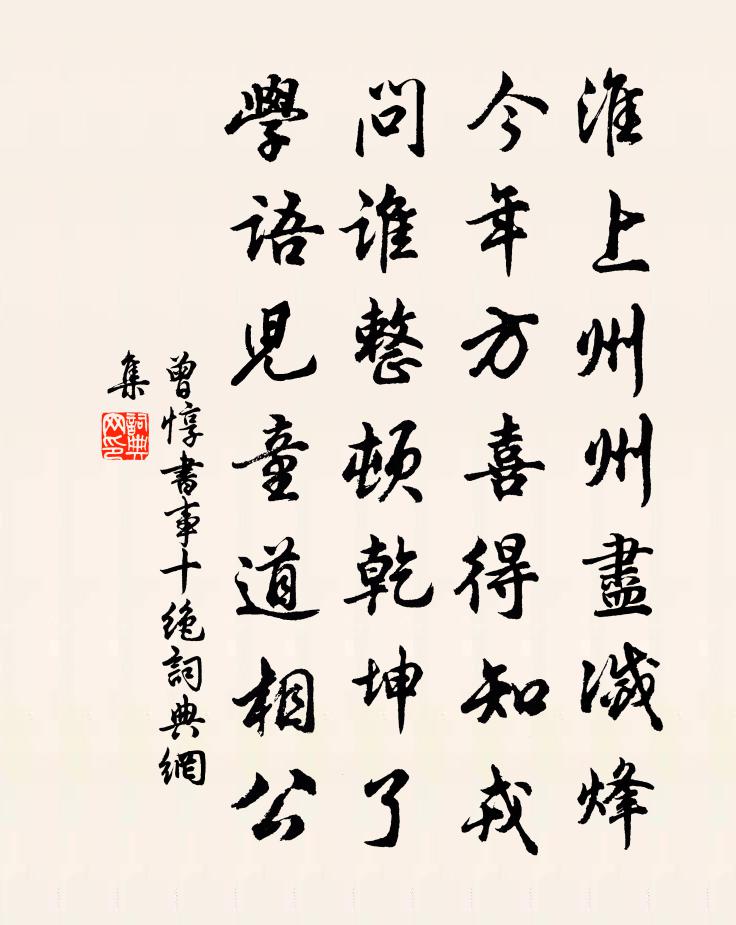 淮上州州盡滅烽
今年方喜得知戎
問誰整頓乾坤了
學語兒童道相公
曾惇書事十絶詞典網
集
詞典
网印